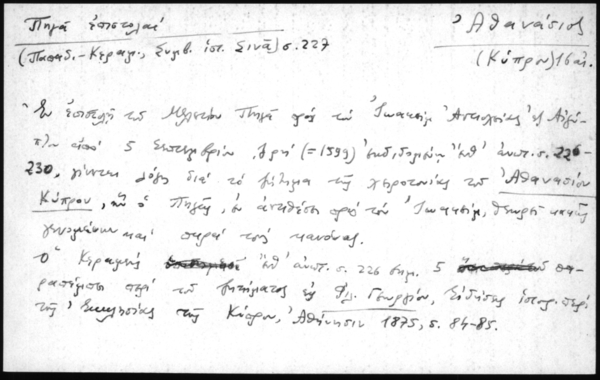 Πηγᾶ ἐπιστολαί
Ἀθανάσιος
(Παπαδ.-Κεραμ., Συμβ. ἱστ. Σινᾶ) σ. 227
(Κύπρου) 16 αἰ.
Ἐν ἐπιστολῇ τοῦ Μελετίου Πηγᾶ πρὸς τὸν Ἰωακεὶμ Ἀντιοχείας ἐξ Αἰγύ-
πτου ἀπὸ 5 Σεπτεμβρίου (=1599) ἐκδιδομένῃ ἔνθ' ἀνωτ. σ. 226-
230, γίνεται λόγος διὰ τὸ ζήτημα τῆς χειροτονίας τοῦ Ἀθανασίου
Κύπρου, ἣν ὁ Πηγᾶς, ἐν ἀντιθέσει πρὸς τὸν Ἰωακείμ, θεωρεῖ κακῶς
γενομένην καὶ παρὰ τοὺς κανόνας.
Ὁ Κεραμεὺς ἔνθ' ἀνωτ. σ. 226 σημ. 5 πα-
ραπέμπει περὶ τοῦ ζητήματος εἰς Φιλ. Γεωργίου, Εἰδήσεις ἱστορ. περὶ
τῆς Ἐκκλησίας τῆς Κύπρου, Ἀθήνησιν 1875, σ. 84-85.